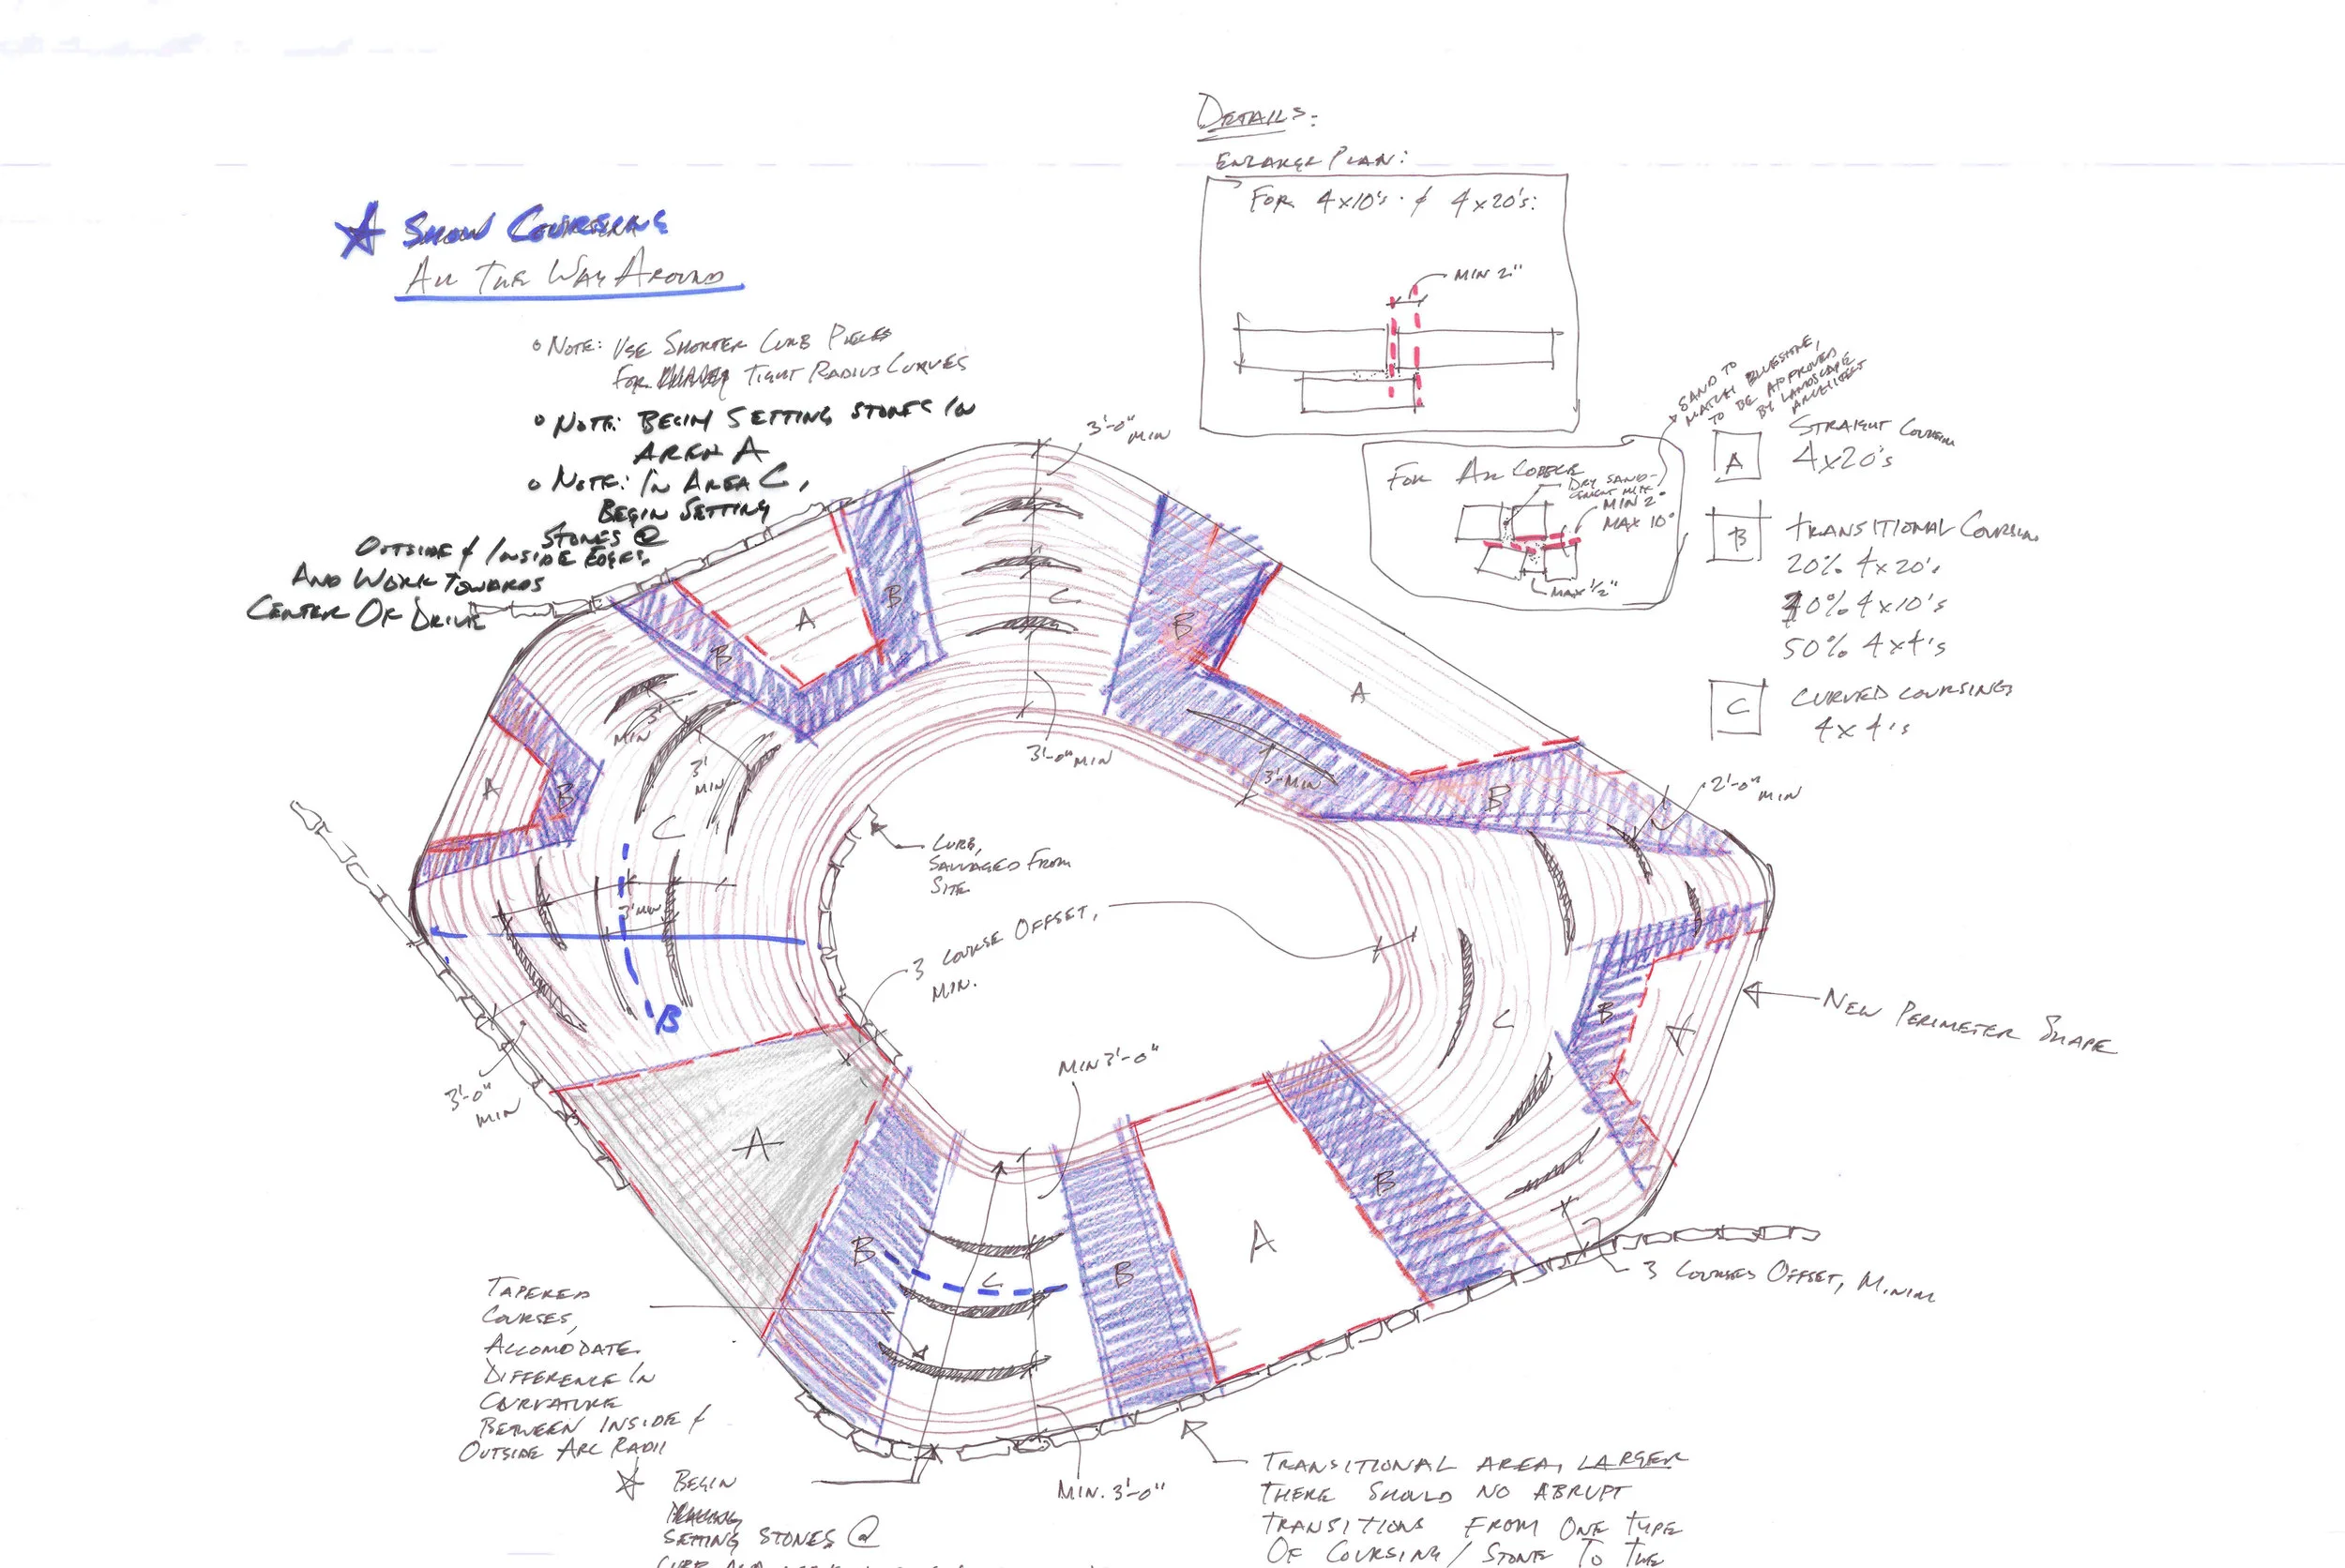 DETAILS:
ENLARGE PLAN:
FOR 4x10's & 4x20's:
MIN 2"
SHOW COURSING
ALL THE WAY AROUND
NOTE: USE SHORTER CURB PIECES
FOR TIGHT RADIUS CURVES
NOTE: BEGIN SETTING STONES IN
AREA A
NOTE: IN AREA C,
BEGIN SETTING
STONES @
OUTSIDE & INSIDE EDGES,
AND WORK TOWARDS
CENTER OF DRIVE
SAND TO
MATCH BLUESTONE,
TO BE APPROVED
BY LANDSCAPE
ARCHITECT
FOR ALL COBBLE
DRY SAND-
CEMENT MIX
MIN 2"
MAX 10"
MAX 1/2"
A STRAIGHT COURSING
4x20's
B TRANSITIONAL COURSING
20% 4x20's
30% 4x10's
50% 4x4's
C CURVED COURSING
4x4's
3'-0" MIN
A
B
C
B
B
A
3'
MIN
3'
MIN
3'-0" MIN
3' MIN
B
2'-0" MIN
A
B
C
CURB,
SALVAGED FROM
SITE
3' MIN
B
3 COURSE OFFSET,
MIN.
C
B
A
NEW PERIMETER SHAPE
3'-0"
MIN
MIN 3'-0"
A
B
C
B
A
B
3 COURSES OFFSET, MINIM
TAPERED
COURSES,
ACCOMODATE
DIFFERENCE IN
CURVATURE
BETWEEN INSIDE &
OUTSIDE ARC RADII
BEGIN
SETTING STONES @
MIN. 3'-0"
TRANSITIONAL AREA, LARGER
THERE SHOULD NO ABRUPT
TRANSITIONS FROM ONE TYPE
OF COURSING / STONE TO THE